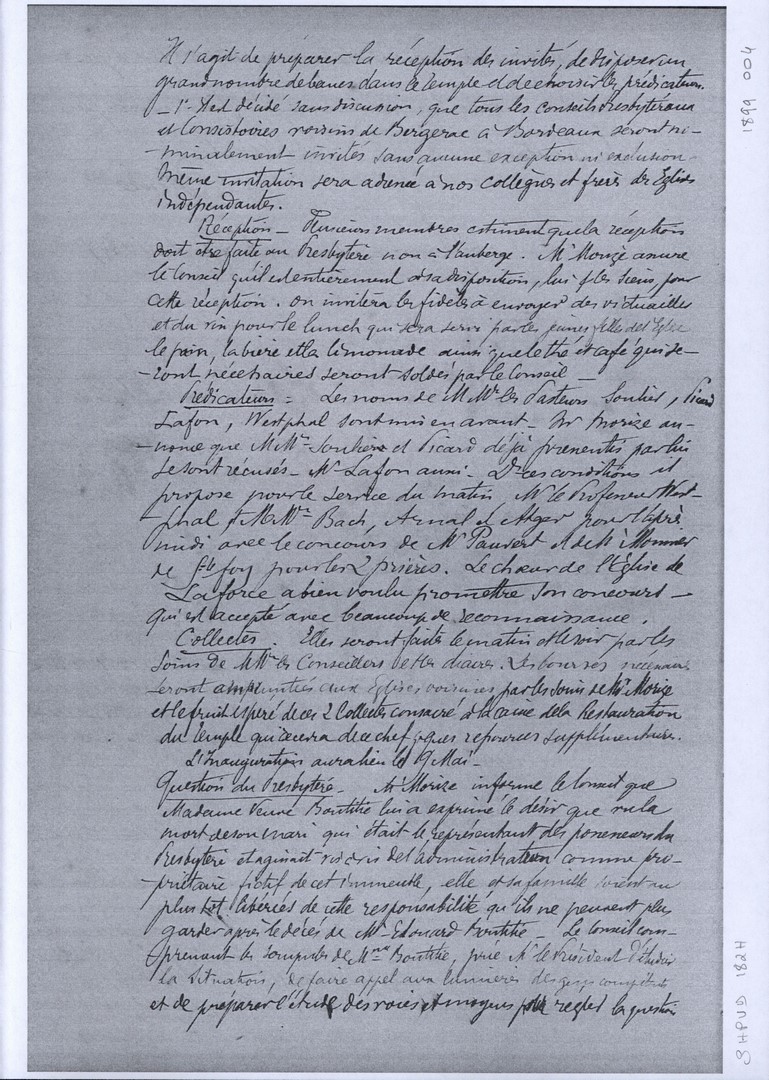 Il s'agit de préparer la réception des invités, de disposer un
grand nombre de bancs dans le Temple et de choisir les prédicateurs.
_ 1° Il est décidé sans discussion, que tous les conseils Presbytéraux
et Consistoires voisins de Bergerac à Bordeaux seront no-
-minalement invités sans aucune exception ni exclusion.
Même invitation sera adressée à nos collègues et frères des Eglises
indépendantes.
Réception _ Plusieurs membres estiment que la réception
doit être faite au Presbytère et non à l'auberge. Mr Morize assure
le Conseil qu'il est entièrement à sa disposition, lui & les siens, pour
cette réception. On invitera les fidèles à envoyer des victuailles
et du vin pour le lunch qui sera servi par les jeunes filles de l'Eglise
le pain, la bière et la limonade ainsi que le thé et café qui se-
-ront nécessaires seront soldés par le Conseil _
Prédicateurs = Les noms de MMrs les Pasteurs Soulier, Picard
Lafon, Westphal sont mis en avant _ Mr Morize an-
-nonce que MMrs Soulier et Picard déjà pressentis par lui
se sont récusés _ Mr Lafon aussi. Dans ces conditions il
propose pour le service du matin Mr le Professeur West-
-phal & MMrs Bach, Arnal et Alger pour l'après
midi avec le concours de Mr Pauvert et de Mr Monnier
de Ste foy pour les 2 prières. Le chœur de l'Eglise de
Laforce a bien voulu promettre son concours _
qui est accepté avec beaucoup de reconnaissance.
Collectes. Elles seront faites le matin et le soir par les
soins de MMrs les Conseillers et les diacres. Les bourses nécessaires
seront empruntées aux Eglises voisines par les soins de Mr Morize
et le fruit espéré de ces 2 Collectes consacré à la caisse de la Restauration
du Temple qui aura de ce chef qques ressources supplémentaires.
L'Inauguration aura lieu le 9 Mai _
Question du Presbytère _ Mr Morize informe le Conseil que
Madame Veuve Boutitie lui a exprimé le désir que vu la
mort de son mari qui était le représentant des possesseurs du
Presbytère et agissait vis à vis de l'administration comme pro-
-priétaire fictif de cet immeuble, elle et sa famille soient au
plus tôt libérées de cette responsabilité qu'ils ne peuvent plus
garder après le décès de Mr Edouard Boutitie _ Le Conseil com-
-prenant les scrupules de Mme Boutitie, prie Mr le Président d'étudier
la situation, de faire appel aux lumières des gens compétents
et de préparer l'étude des voies et moyens pour régler la question
1899 004
SHPVD 182H